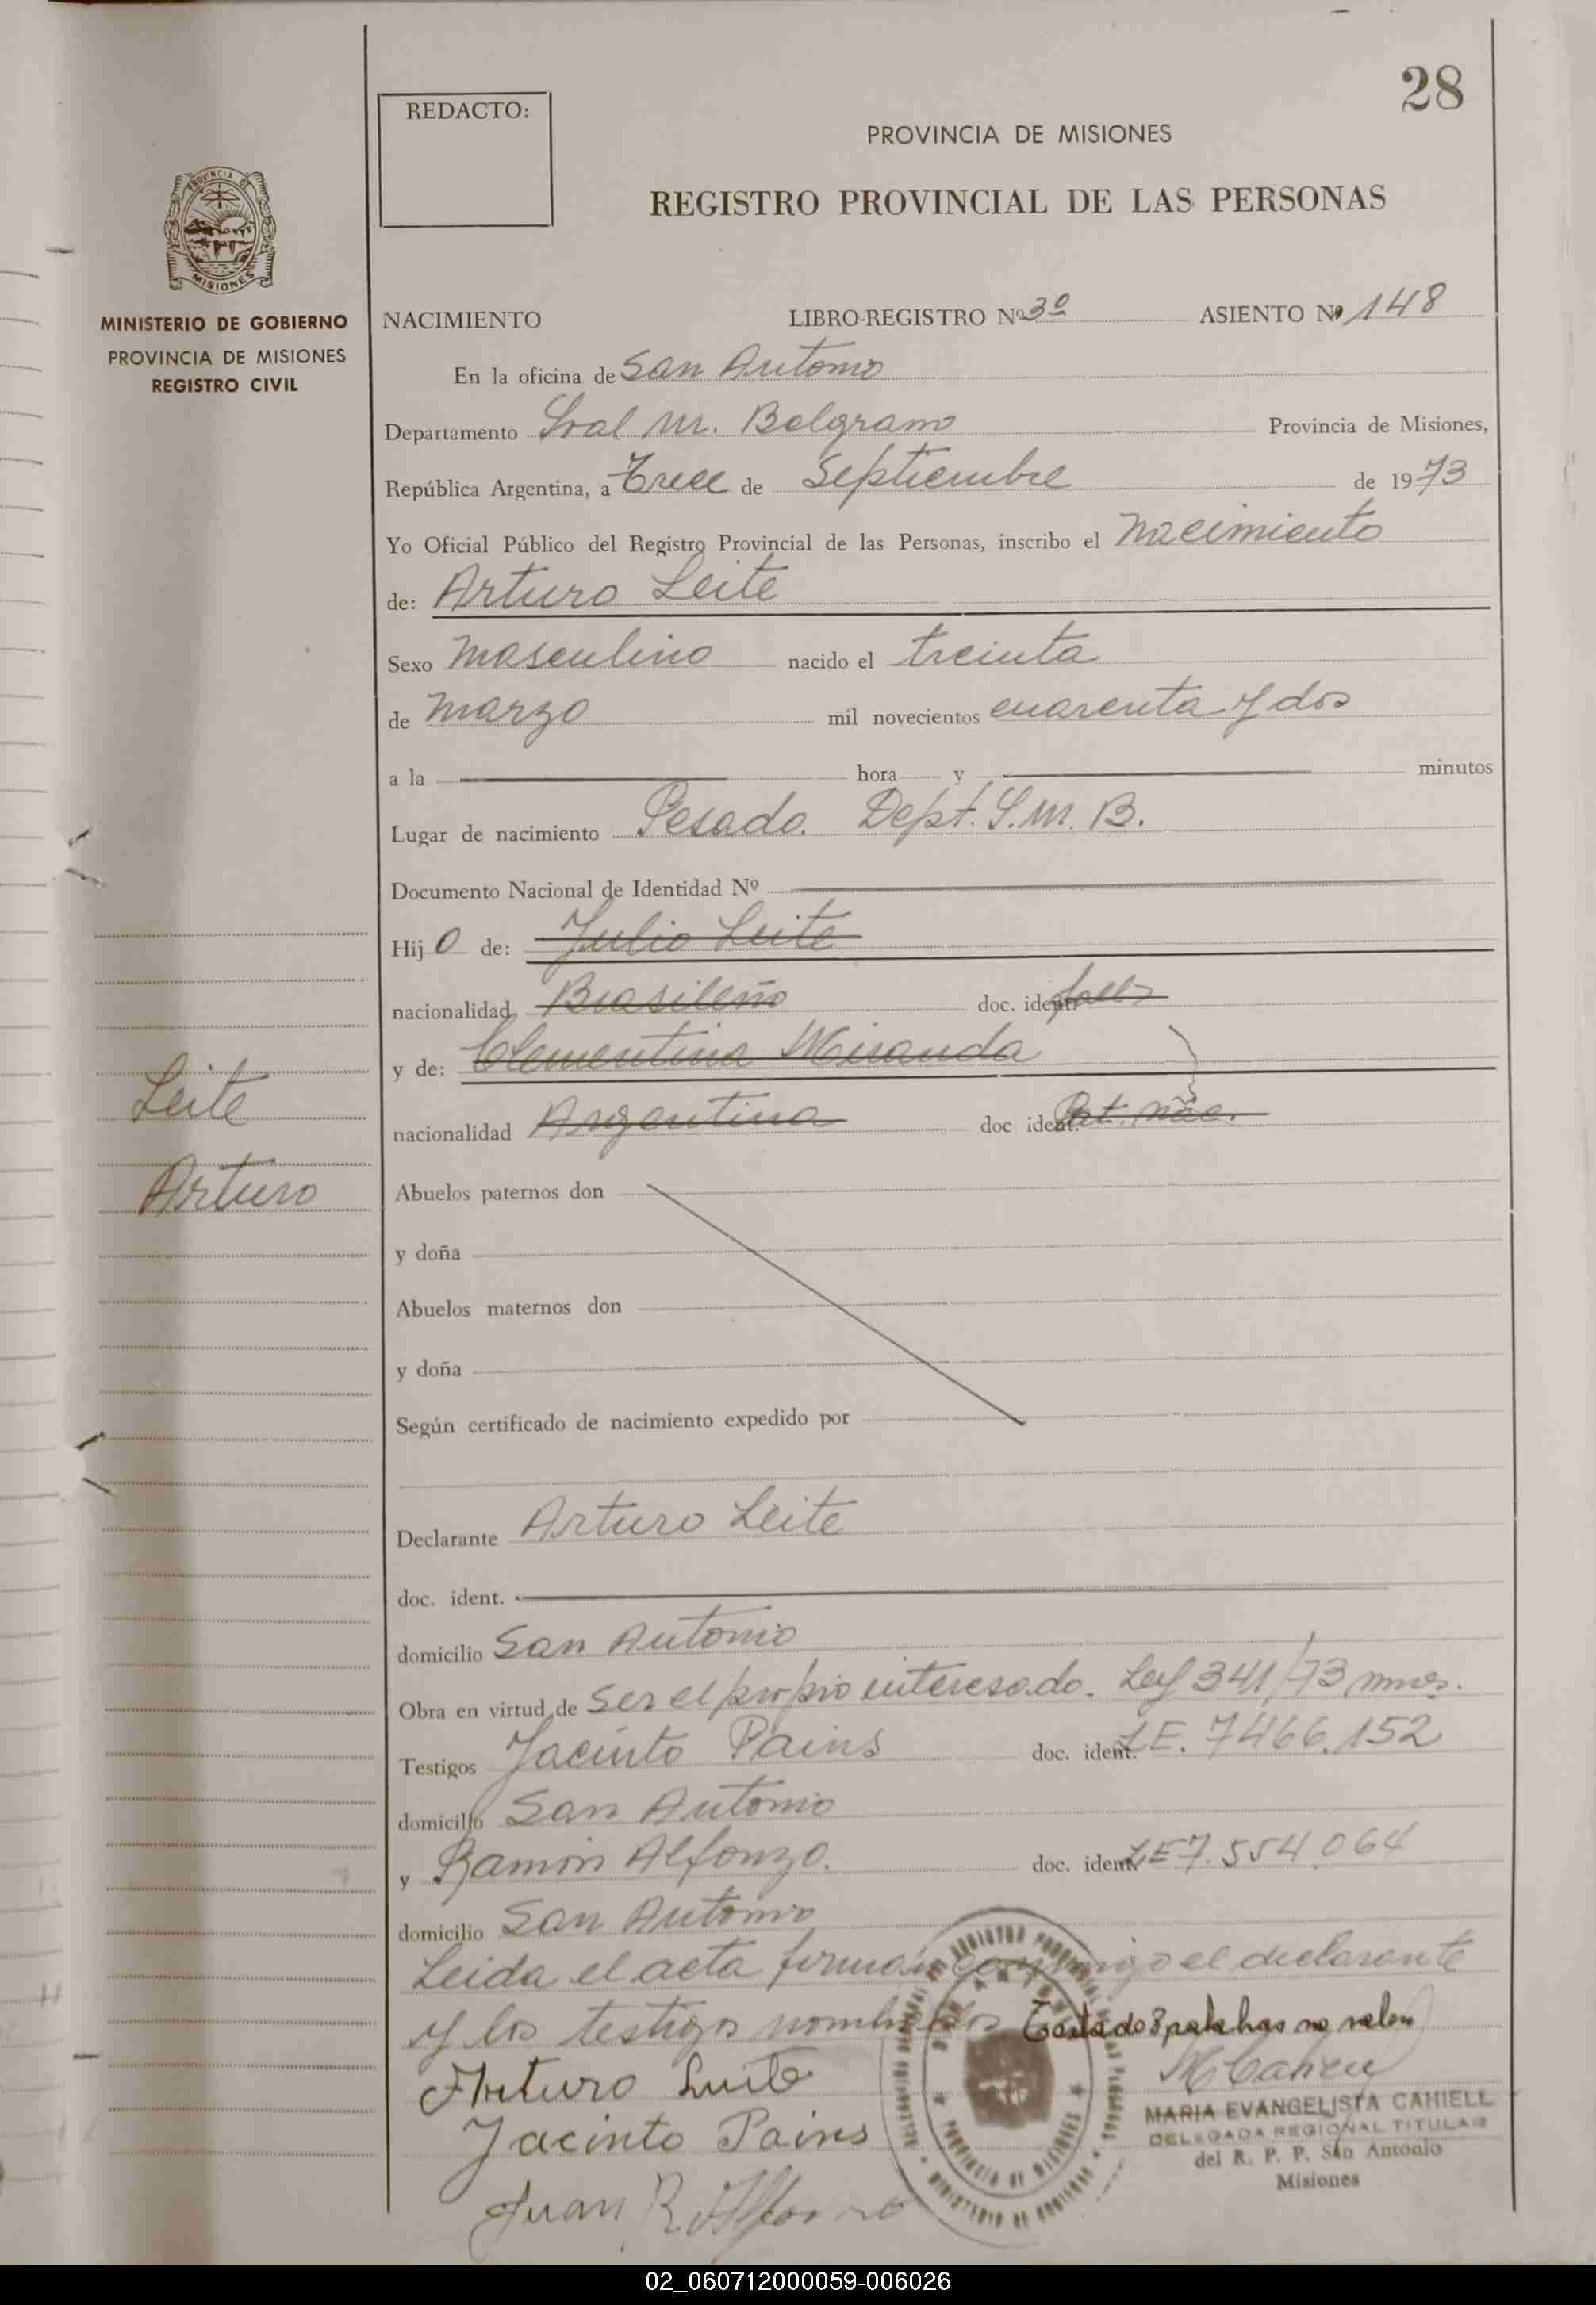 28
REDACTO:
PROVINCIA DE MISIONES
REGISTRO PROVINCIAL DE LAS PERSONAS
PROVINCIA DE
MISIONES
MINISTERIO DE GOBIERNO
PROVINCIA DE MISIONES
REGISTRO CIVIL
NACIMIENTO LIBRO-REGISTRO Nº 3º ASIENTO Nº 148
En la oficina de San Antonio
Departamento Gral M. Belgrano Provincia de Misiones,
República Argentina, a Trece de Septiembre de 1973
Yo Oficial Público del Registro Provincial de las Personas, inscribo el Nacimiento
de: Arturo Leite
Sexo Masculino nacido el treinta
de Marzo mil novecientos cuarenta y dos
a la hora y minutos
Lugar de nacimiento Pesado. Dept. G. M. B.
Documento Nacional de Identidad Nº
Hij o de: Julio Leite
nacionalidad Brasileño doc. ident.
y de: Clementina Miranda
nacionalidad Argentina doc ident.
Leite
Arturo
Abuelos paternos don
y doña
Abuelos maternos don
y doña
Según certificado de nacimiento expedido por
Declarante Arturo Leite
doc. ident.
domicilio San Antonio
Obra en virtud de ser el propio interesado. Ley 341/73
Testigos Jacinto Pains doc. ident. L.E. 7466.152
domicilio San Antonio
y Ramón Alfonzo. doc. ident. LE 7.554.064
domicilio San Antonio
Leida el acta firman conmigo el declarante
y los testigos nombrados Testado 8 palabras no valen
Arturo Leite
Jacinto Pains
Juan R Alfonzo
MARIA EVANGELISTA CAHIELL
DELEGADA REGIONAL TITULAR
del R. P. P. San Antonio
Misiones
PROVINCIA DE MISIONES
MINISTERIO DE GOBIERNO
02_060712000059-006026